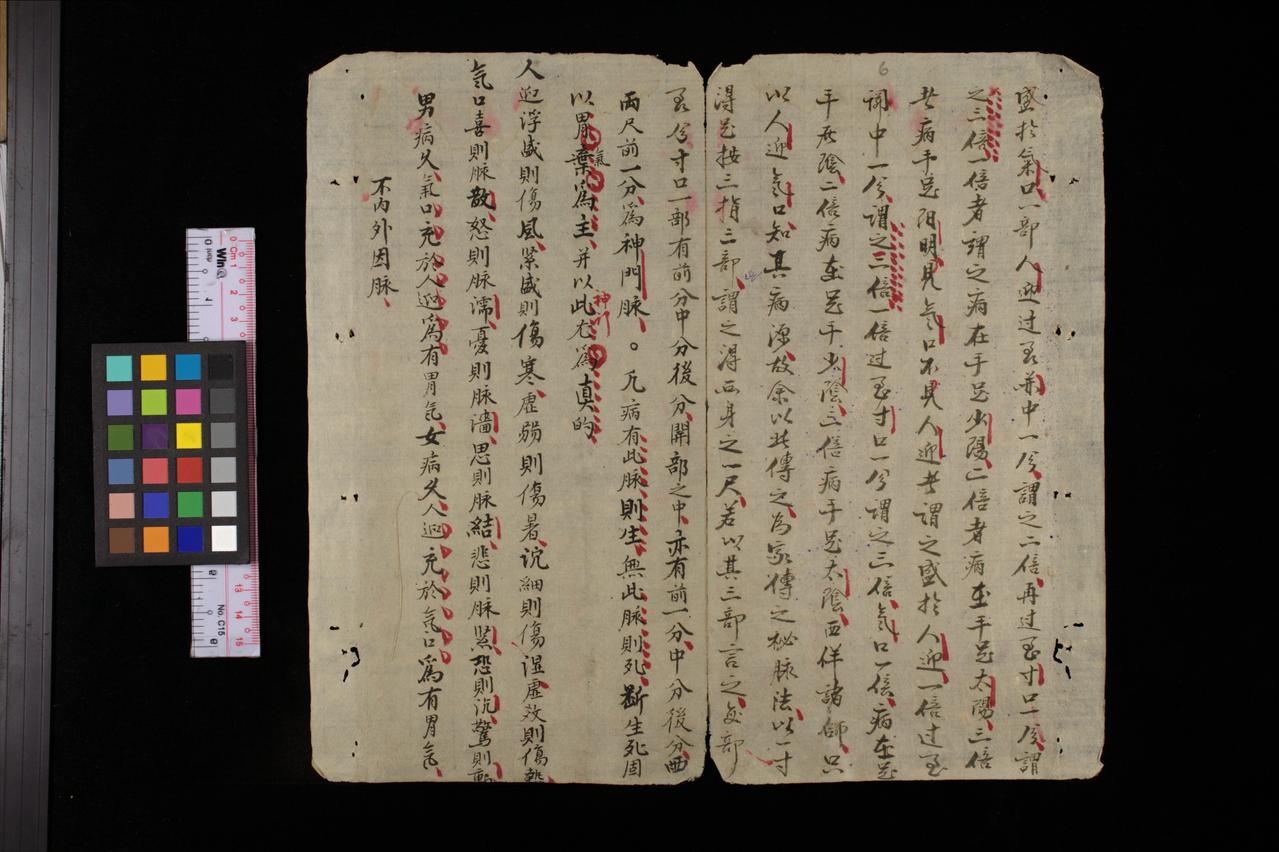 6
盛於氣口一部人迎过至关中一分謂之二倍再过至寸口一分謂
之三倍一倍者謂之病在手足少陽二倍者病在手足太陽三倍
者病手足阳明見氣口不見人迎者謂之盛於人迎一倍过至
関中一分謂之三倍一倍过至寸口一分謂之三倍氣口一倍病在足
手厥陰二倍病在足手少陰三倍病手足太陰西佯諸師只
以人迎氣口知其病源故余以此傳之為家傳之秘脉法以一寸
得足按三指三部謂之得一身之一尺若以其三部言之每部
至分寸口一部有前分中分後分開部之中亦有前一分中分後分
兩尺前一分爲神門脉。凡病有此脉則生無此脉則死斷生死固
以胃氣爲主并以此尤爲真的
神門
人迎浮盛則傷風紧盛則傷寒虛弱則傷暑沉細則傷湿虛效則傷熱
氣口喜則脉散怒則脉濡憂則脉濇思則脉結悲則脉紧恐則沉驚則動
男病久氣口充於人迎爲有胃氣女病久人迎充於氣口爲有胃氣
不内外因脉
Wing
cm 1 2 3
13 14 15
No. C15